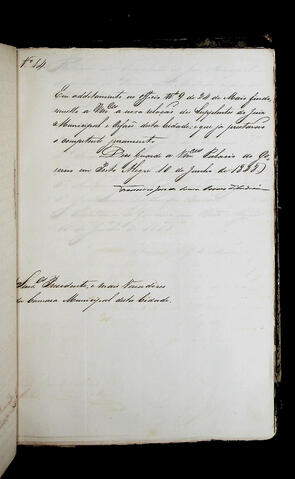 Nº 14
Em additamento ao officio Nº 9 de 24 de Maio findo,
remetto a Vmces a nova relação de Supplentes do Juiz
Municipal e Orfãos desta Cidade; e que já prestarão
o competente juramento.
Deos Guarde a Vmces Palacio do Go-
verno em Porto Alegre 10 de Junho de
Senres Presidente, e mais Vereadores
da Camara Municipal desta Cidade.